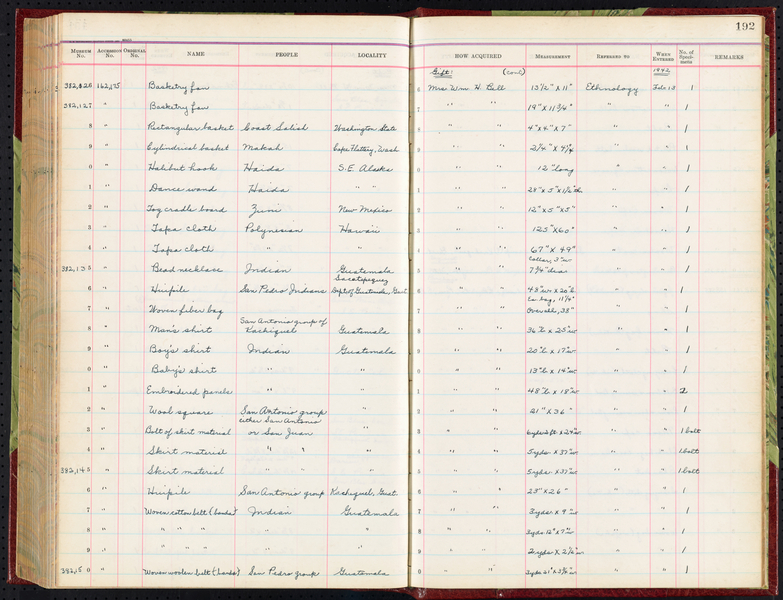 192
MUSEUM No. ACCESSION No. ORIGINAL No. NAME PEOPLE LOCALITY HOW ACQUIRED MEASUREMENT REFERRED TO WHEN ENTERED No. of Specimens REMARKS
Gift: (cont) 1942
382,126 162,175 Basketry fan 6 Mrs. Wm. H. Bell 13 1/2" x 11" Ethnology Feb. 13 1
382,127 " Basketry fan 7 " " 19" x 11 3/4" " " 1
8 " Rectangular basket Coast Salish Washington State 8 " " 4" x 4" x 7" " " 1
9 " Cylindrical basket Makah Cape Flattery, Wash 9 " " 2 3/4" x 4 1/4" " " 1
0 " Halibut hook Haida S.E. Alaska 0 " " 12" long " " 1
1 " Dance wand Haida " " 1 " " 28" x 5" x 1 1/2" th. " " 1
2 " Toy cradle board Zuni New Mexico 2 " " 12" x 5" x 5" " " 1
3 " Tapa cloth Polynesian Hawaii 3 " " 125" x 60" " " 1
4 " Tapa cloth " " 4 " " 67" x 49" " " 1
Collar, 3" w
382,135 " Bead necklace Indian Guatemala 5 " " 7 3/4" dia " " 1
Sacatepequez
6 " Huipile San Pedro Indians Dept. of Guatemala, Guat. 6 " " 48" w x 20" l " " 1
Ca. bag, 11 1/4"
7 " Woven fiber bag 7 " " Overall, 38" " " 1
San Antonio group of
8 " Man's shirt Kachiquel Guatemala 8 " " 36" l x 25" w " " 1
9 " Boy's shirt Indian Guatemala 9 " " 20" l x 17" w " " 1
0 " Baby's shirt " " 0 " " 13" l x 14" w " " 1
1 " Embroidered panels " " 1 " " 48" l x 18" w " " 2
2 " Wool square San Antonio group " 2 " " 21" x 36" " " 1
either San Antonio
3 " Bolt of skirt material or San Juan " 3 " " 6 yds 2 ft x 24" w. " " 1 bolt
4 " Skirt material " " " 4 " " 5 yds x 37" w " " 1 bolt
382,145 " Skirt material " " " 5 " " 5 yds x 37" w " " 1 bolt
6 " Huipile San Antonio group Kachiquel, Guat. 6 " " 23" x 26" " " 1
7 " Woven cotton belt (bands) Indian Guatemala 7 " " 3 yds x 9" w " " 1
8 " " " " " " 8 " " 3 yds 12" x 7" w " " 1
9 " " " " " " 9 " " 2 yds x 2 1/2" w " " 1
382,150 " Woven woolen belt (bands) San Pedro group Guatemala 0 " " 2 yds 21" x 3 1/2" w " " 1